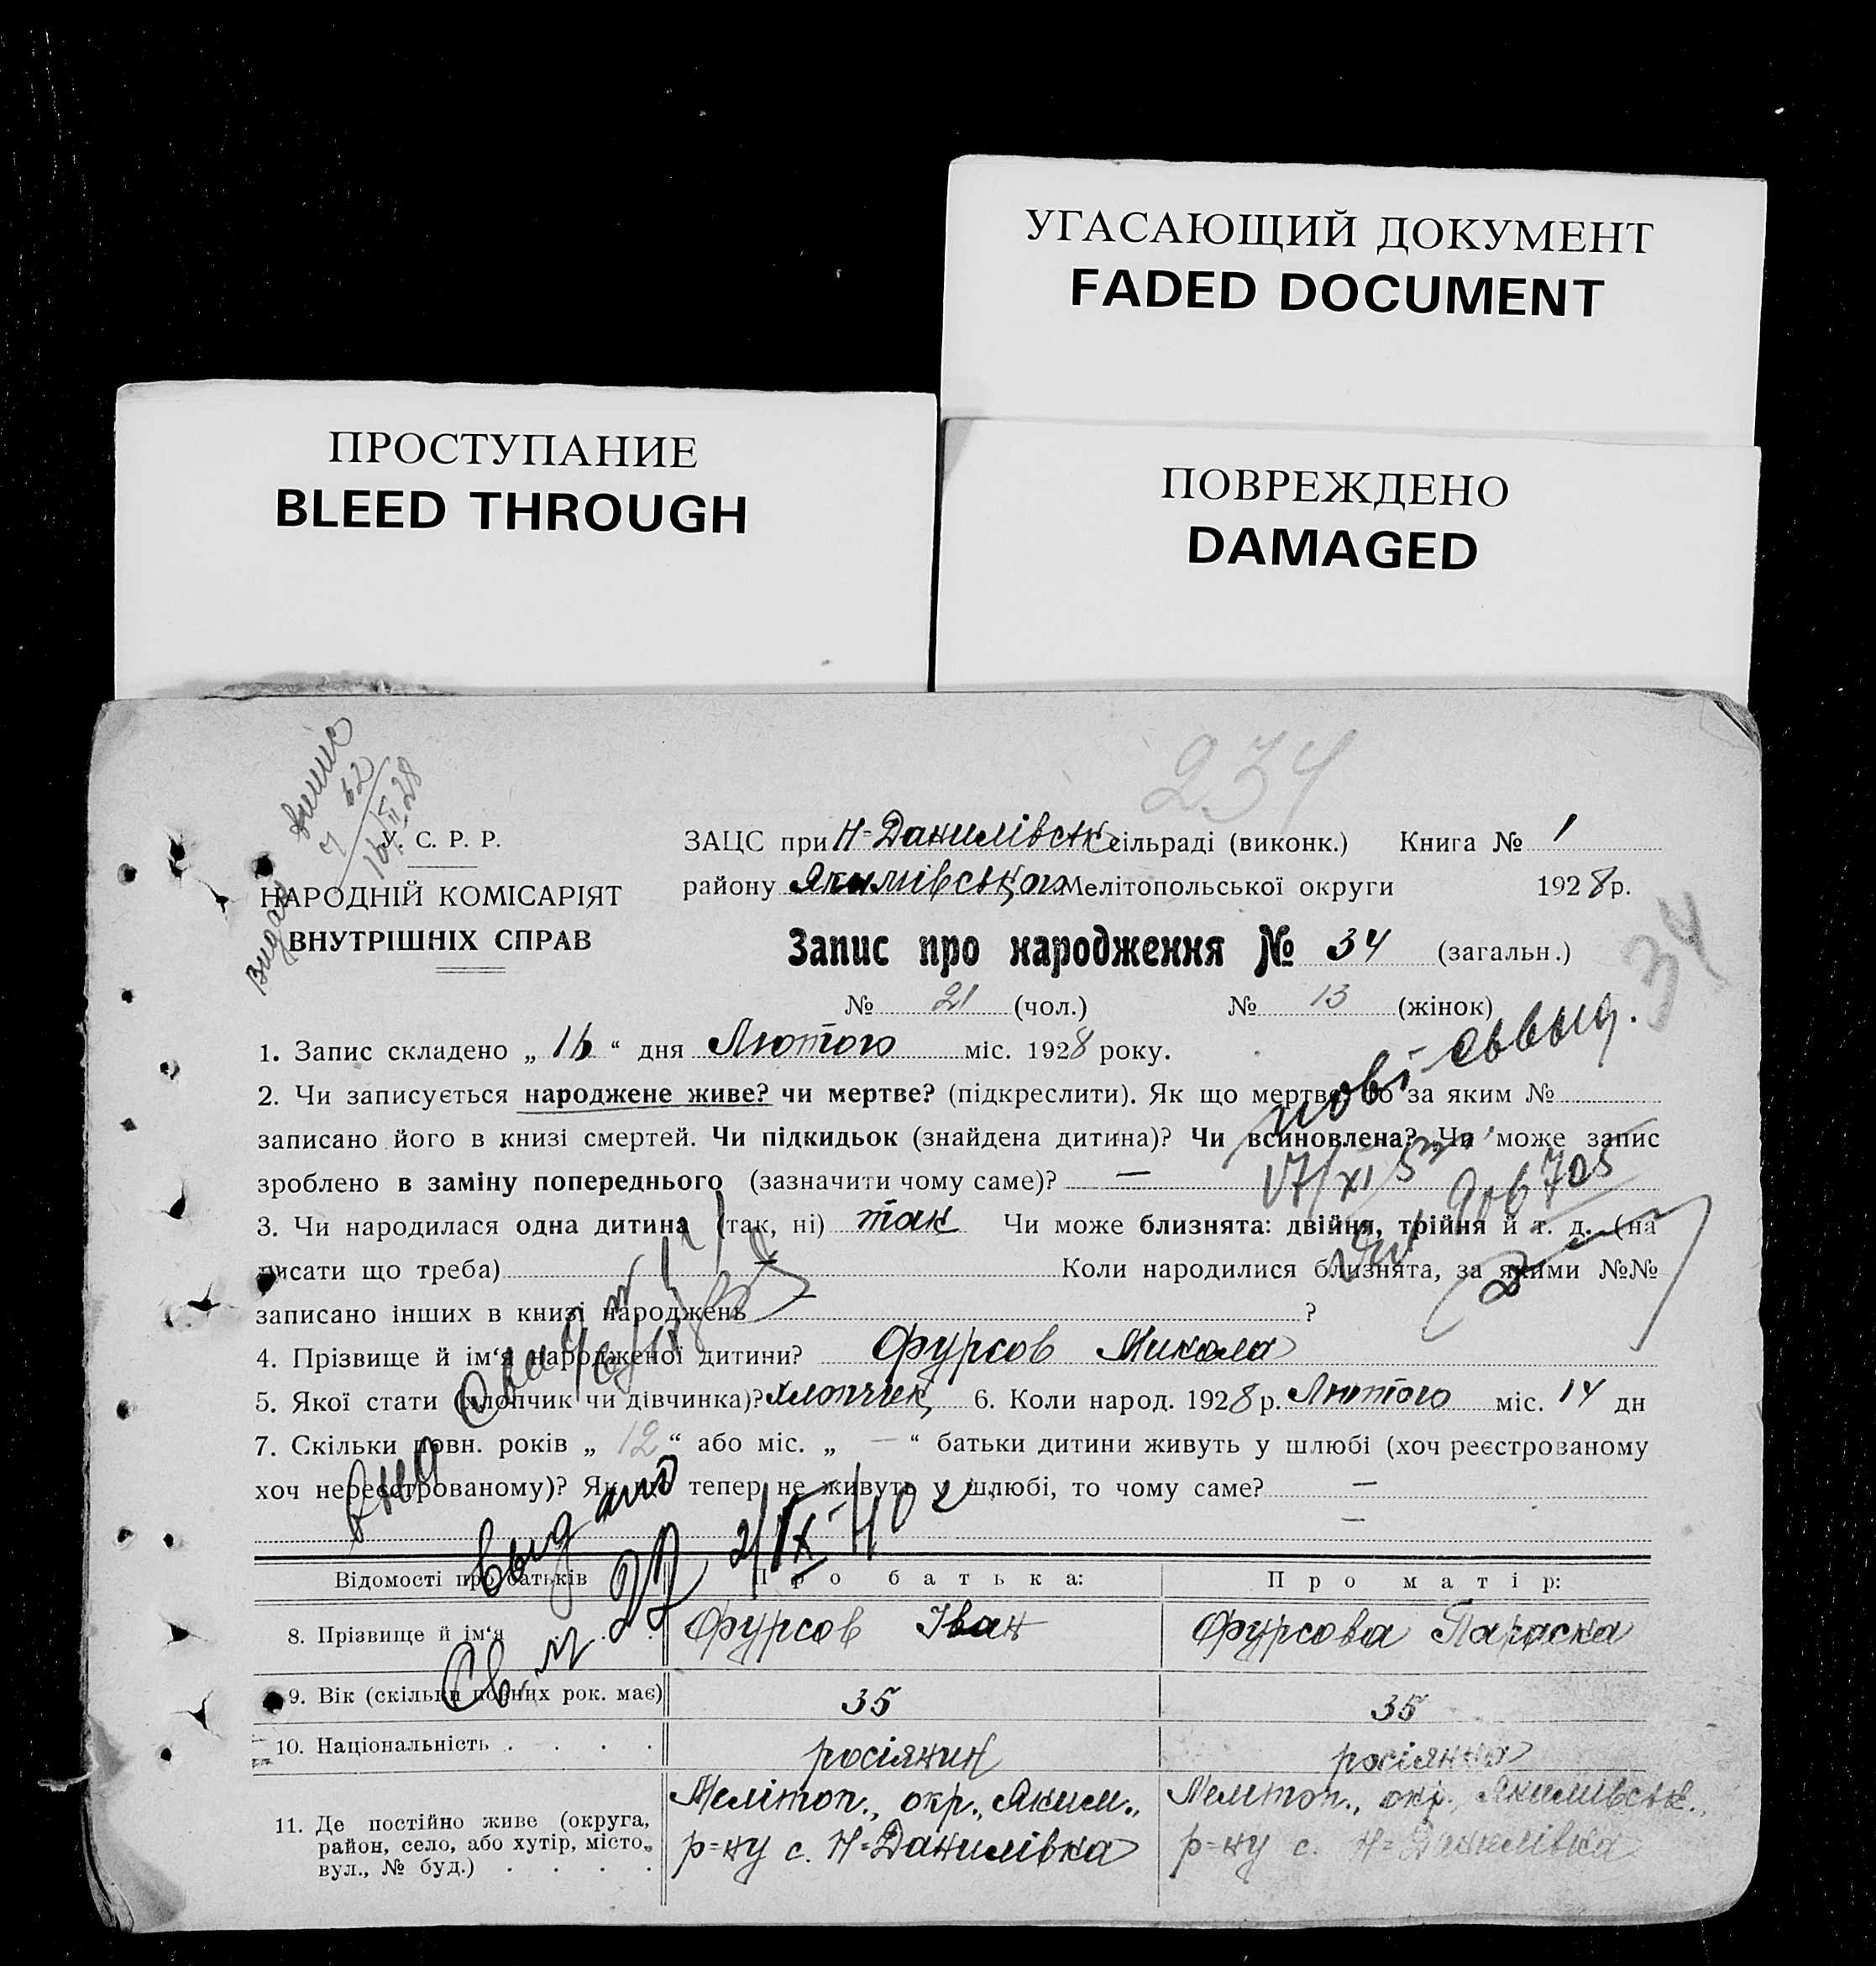 УГАСАЮЩИЙ ДОКУМЕНТ
FADED DOCUMENT
ПРОСТУПАНИЕ
BLEED THROUGH
ПОВРЕЖДЕНО
DAMAGED
234
У. С. Р. Р.
НАРОДНІЙ КОМІСАРІЯТ
ВНУТРІШНІХ СПРАВ
ЗАЦС при Н=Данилівськ сільраді (виконк.) Книга № 1
району Якимівського Мелітопольської округи 1928 р.
Запис про народження № 34 (загальн.)
34
№ 21 (чол.) № 13 (жінок)
1. Запис складено „ 16 “ дня Лютого міс. 1928 року.
2. Чи записується народжене живе? чи мертве? (підкреслити). Як що мертве, то за яким №
записано його в книзі смертей. Чи підкидьок (знайдена дитина)? Чи всиновлена? Чи може запис
зроблено в заміну попереднього (зазначити чому саме)? —
3. Чи народилася одна дитина (так, ні) так Чи може близнята: двійня, трійня й т. д. (на
писати що треба) Коли народилися близнята, за якими №№
записано інших в книзі народжень ?
4. Прізвище й ім‘я народженої дитини? Фурсов Микола
5. Якої стати (хлопчик чи дівчинка)? хлопчик 6. Коли народ. 1928 р. Лютого міс. 14 дн
7. Скільки повн. років „ 12 “ або міс. „ — “ батьки дитини живуть у шлюбі (хоч реєстрованому
хоч нереєстрованому)? Як що тепер не живуть у шлюбі, то чому саме? —
—
Відомості про батьків Про батька: Про матір:
8. Прізвище й ім‘я Фурсов Іван Фурсова Параска
9. Вік (скільки повних рок. має) 35 35
10. Національність . . . . росіянин росіянка
11. Де постійно живе (округа, район, село, або хутір, місто, вул., № буд.) . . . .
Меліton., окр., Яким.,
р=ну с. Н=Данилівка
Мелітоп., окр., Якимівськ.,
р=ну с. Н=Данилівка